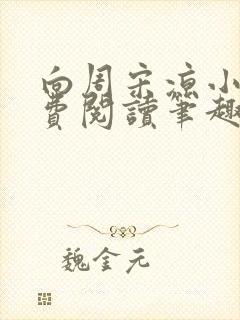 向周宋凉小
费阅读笔趣
魏金元